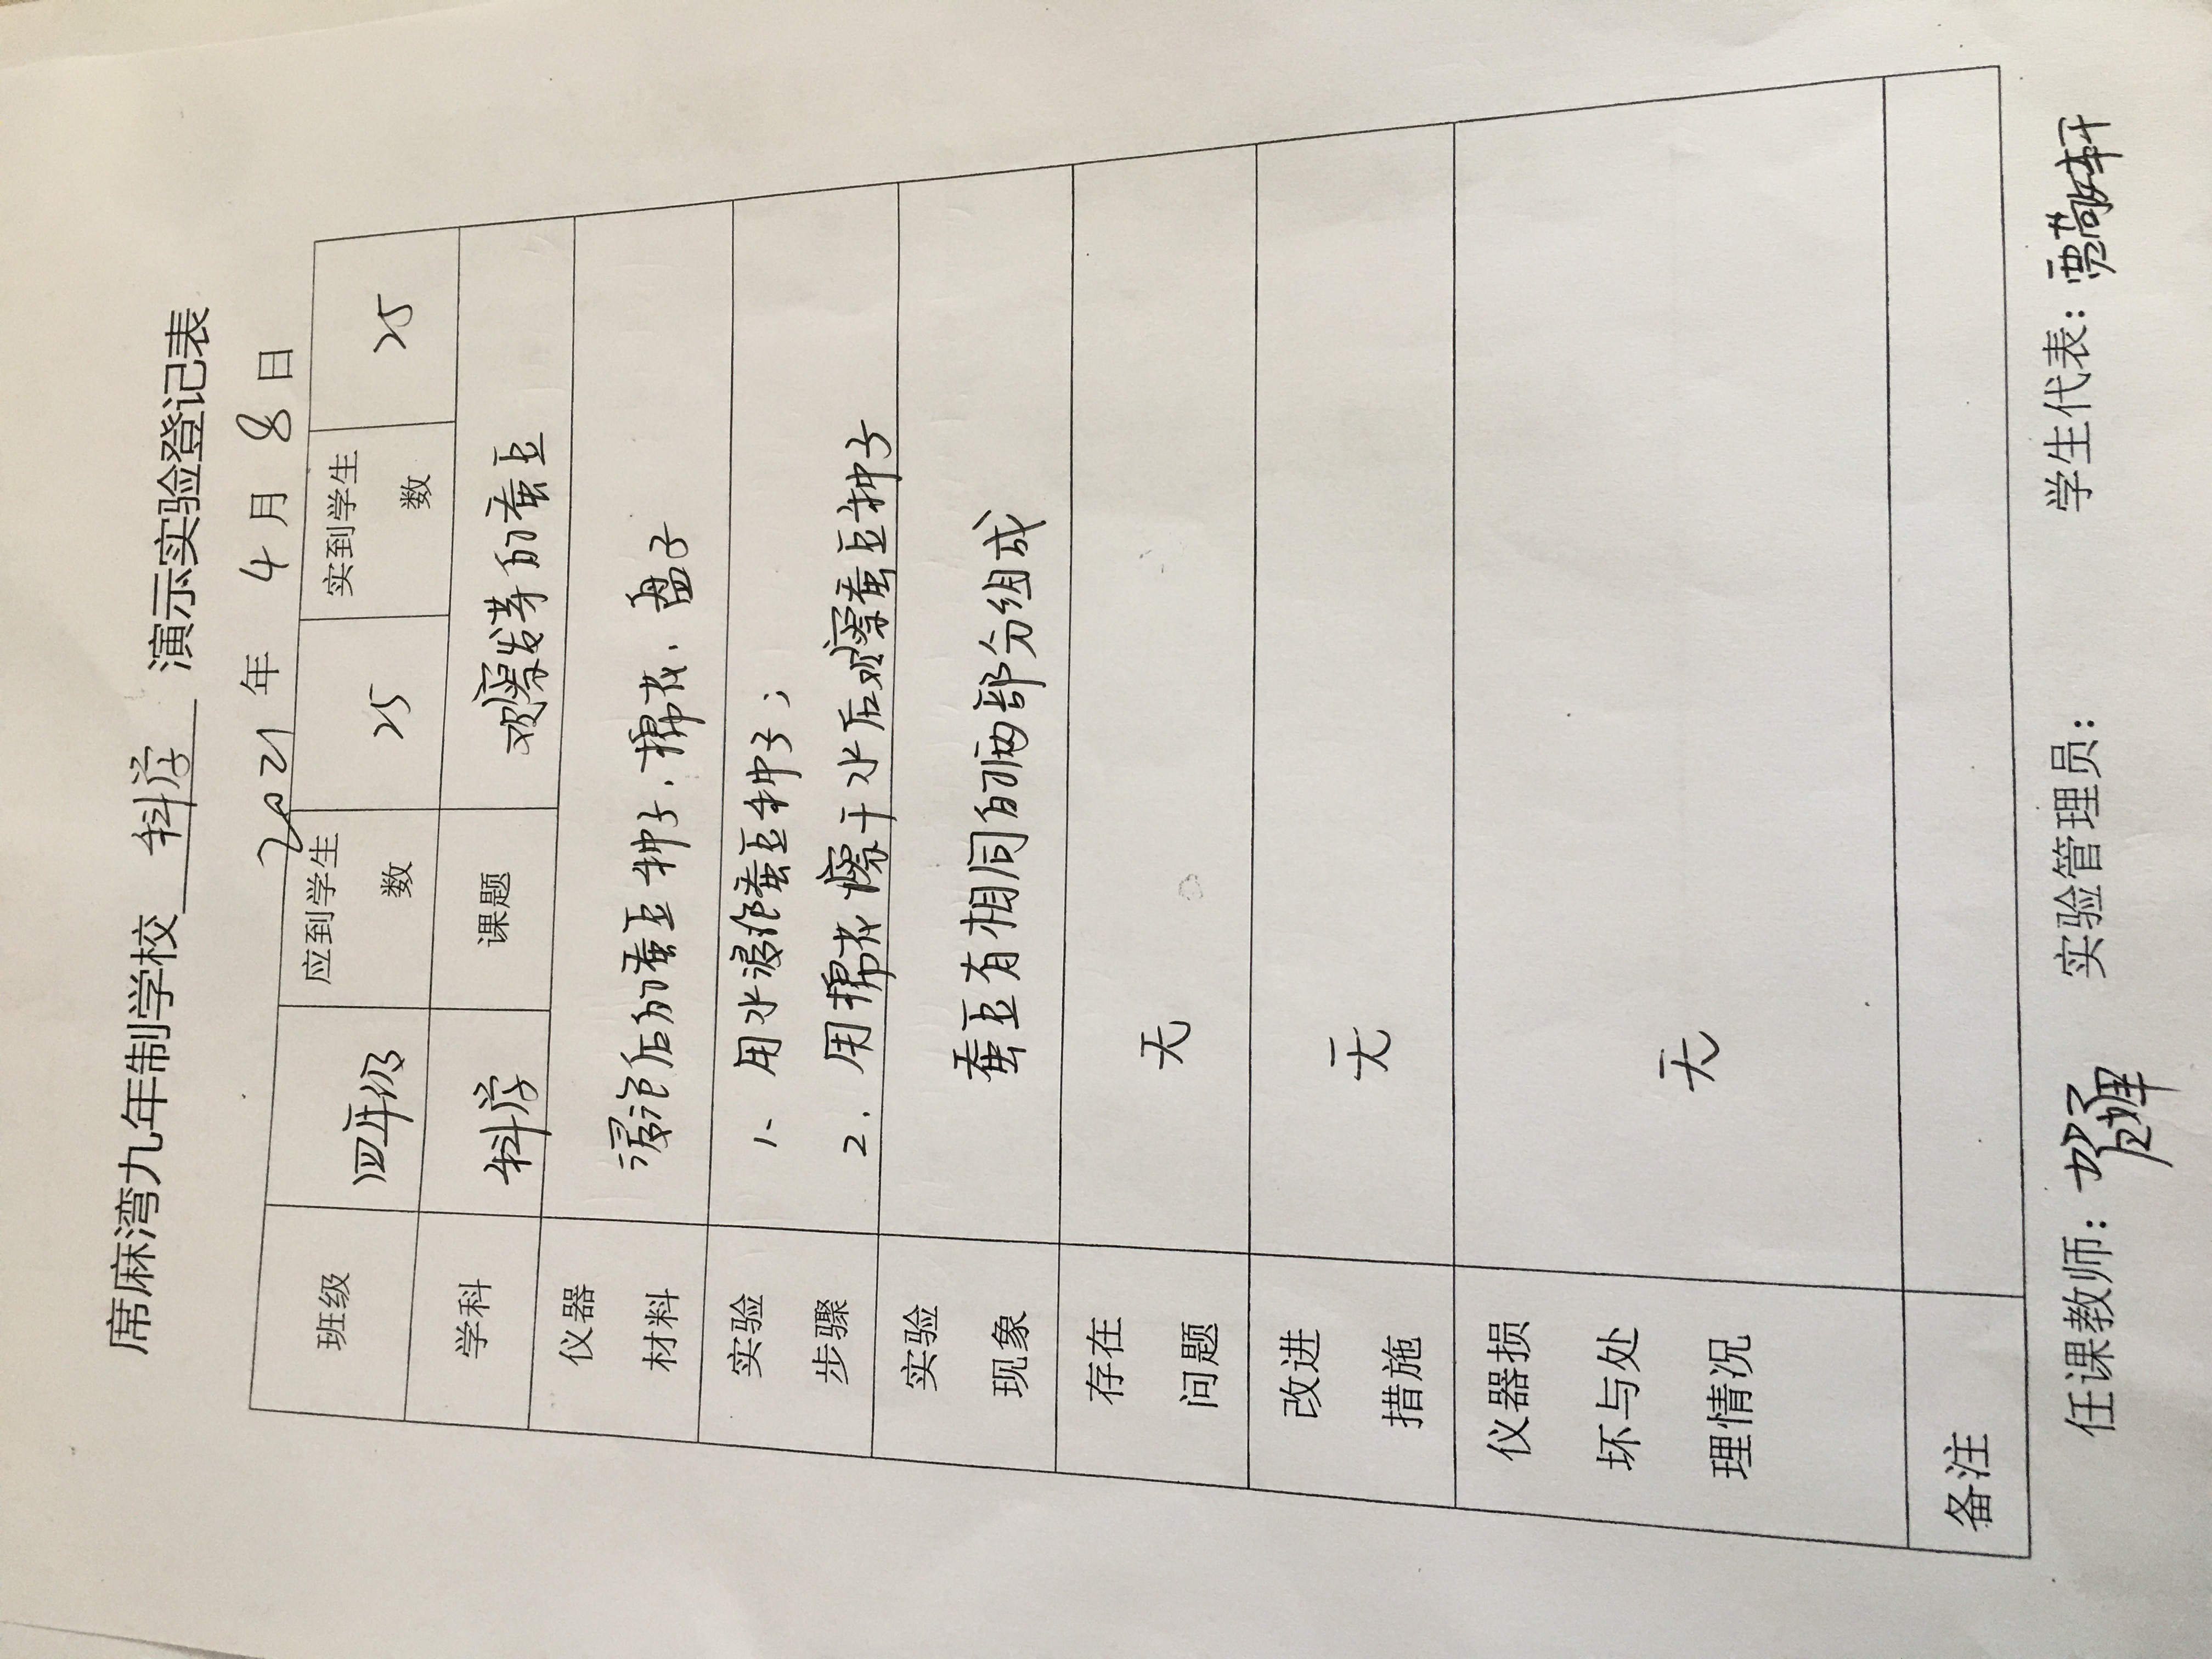 席麻湾九年制学校 科学 演示实验登记表
2021 年 4 月 8 日
班级 四年级 应到学生数 25 实到学生数 25
学科 科学 课题 观察发芽的蚕豆
仪器材料 浸泡后的蚕豆种子、棉花、盘子
实验步骤 1、用水浸泡蚕豆种子;
2. 用棉花擦干水后观察蚕豆种子
实验现象 蚕豆有相同的两部分组成
存在问题 无
改进措施 无
仪器损坏与处理情况 无
备注
任课教师: 实验管理员: 学生代表: